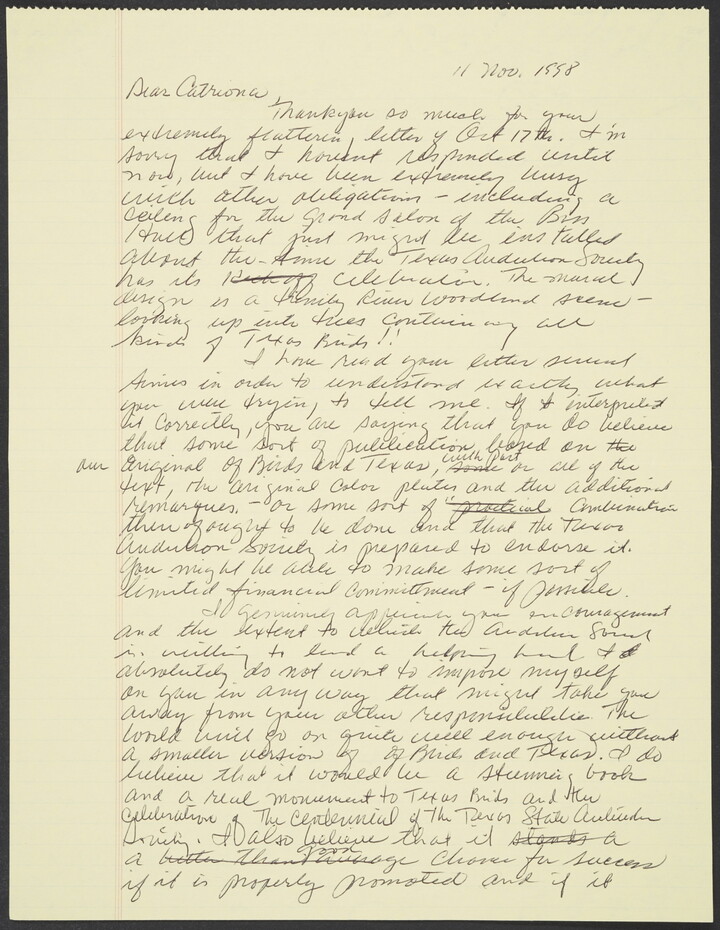 11 Nov. 1998
Dear Catriona,
Thankyou so much for your
extremely flattering letter of Oct 17th. I'm
sorry that I havent responded until
now, but I have been extremely busy
with other obligations – including a
ceiling for the Grand Salon of the Bass
Hall that just might be installed
about the time the Texas Audubon Society
has its Kick off celebration. The mural
design is a Trinity River Woodland scene –
looking up into trees containing all
kinds of Texas Birds!!
I have read your letter several
times in order to understand exactly what
you were trying to tell me. If I interpreted
it correctly, you are saying that you do believe
that some sort of publication based on the
our original Of Birds and Texas, some with part or all of the
text, the original color plates and the additional
remarques – or some sort of practical combination
thereof ought to be done and that the Texas
Audubon Society is prepared to endorse it.
You might be able to make some sort of
limited financial commitment – if possible.
I genuinely appreciate your encouragement
and the extent to which the Audubon Society
is willing to lend a helping hand. I
absolutely do not want to impose myself
on you in any way that might take you
away from your other responsibilities. The
world will go on quite well enough without
a smaller version of Of Birds and Texas. I do
believe that it would be a stunning book
and a real monument to Texas Birds and the
celebration of the Centennial of the Texas State Audubon
Society. I also believe that it stands a
a better than average chance for success
if it is properly promoted and if it